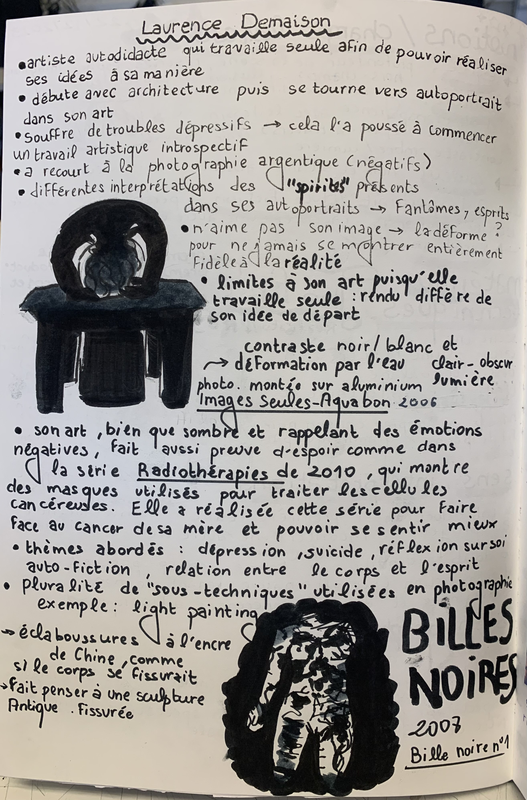 Laurence Demaison
•artiste autodidacte qui travaille seule afin de pouvoir réaliser
ses idées à sa manière
• débute avec architecture puis se tourne vers autoportrait
dans son art
•souffre de troubles dépressifs → cela l'a poussé à commencer
un travail artistique introspectif
•a recourt à la photographie argentique (négatifs)
• différentes interprétations des "spirites" présents
dans ses autoportraits → Fantômes, esprits ?
•n'aime pas son image → la déforme
pour ne jamais se montrer entièrement
fidèle à la réalité
• limites à son art puisqu'elle
travaille seule : rendu diffère de
son idée de départ
contraste noir/blanc et
→ déformation par l'eau clair-obscur
photo. montée sur aluminium lumière
Images Seules-Aquabon 2006
• son art, bien que sombre et rappelant des émotions
négatives, fait aussi preuve d'espoir comme dans
la série Radiothérapies de 2010, qui montre
des masques utilisés pour traiter les cellules
cancéreuses. Elle a réalisée cette série pour faire
face au cancer de sa mère et pouvoir se sentir mieux
• thèmes abordés : dépression, suicide, réflexion sur soi
auto-fiction, relation entre le corps et l'esprit
• Pluralité de "sous-techniques" utilisées en photographie
exemple : light painting
→ éclaboussures à l'encre
de Chine, comme
si le corps se fissurait
→fait penser à une sculpture
Antique. fissurée
BILLES
NOIRES
2007
Bille noire n°1